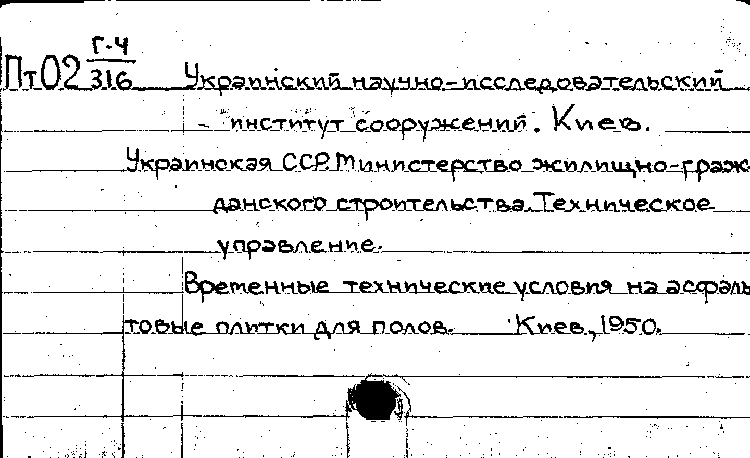 Пт02 Г-4/316 Украинский научно-исследовательский
институт сооружений. Киев.
Украинская ССР. Министерство жилищно-граж
данского строительства. Техническое
управление.
Временные технические условия на асфаль
товые плитки для полов. Киев, 1950.